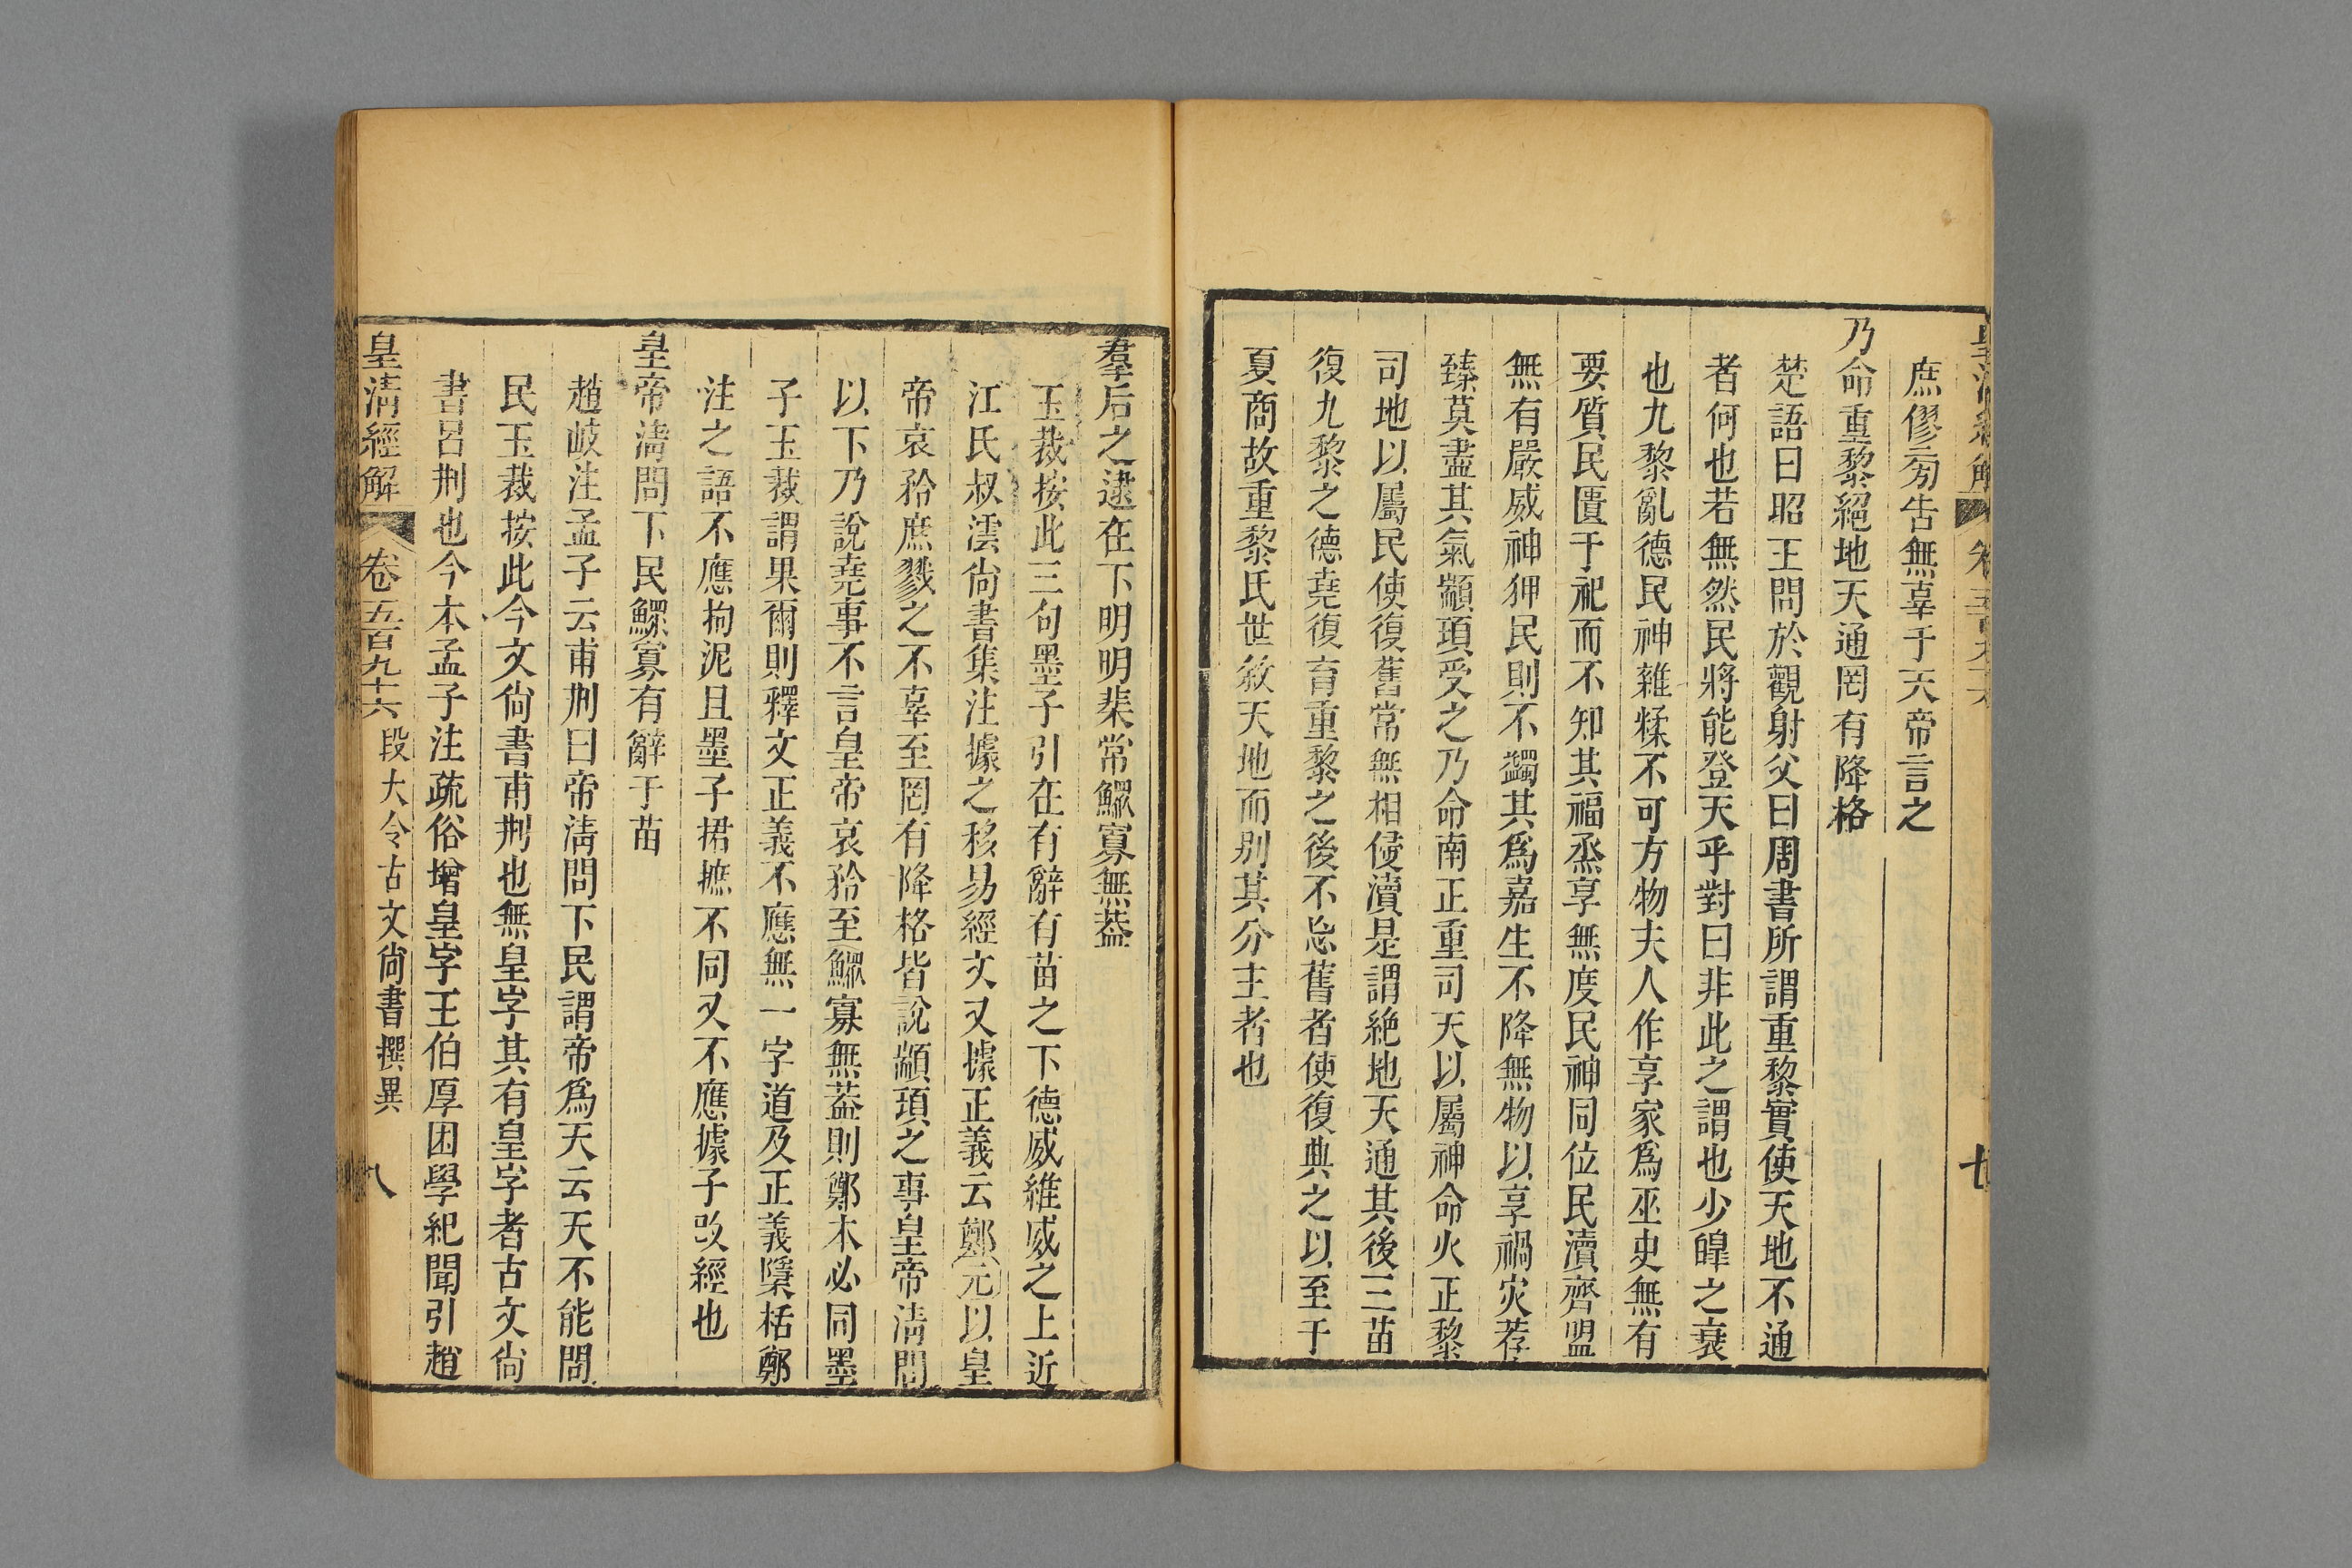 庶僇㫄告無辜于天帝言之
乃命重黎絕地天通罔有降格
楚語曰昭王問於觀射父曰周書所謂重黎實使天地不通
者何也若無然民將能登天乎對曰非此之謂也少皥之衰
也九黎亂德民神雜糅不可方物夫人作享家爲巫史無有
要質民匱于祀而不知其福烝享無度民神同位民瀆齊盟
無有嚴威神狎民則不蠲其爲嘉生不降無物以享禍灾荐
臻莫盡其氣顓頊受之乃命南正重司天以屬神命火正黎
司地以屬民使復舊常無相侵瀆是謂絶地天通其後三苗
復九黎之德堯復育重黎之後不忘舊者使復典之以至于
夏商故重黎氏世敘天地而别其分主者也
羣后之逮在下明明棐常鰥寡無葢
玉裁按此三句墨子引在有辭有苗之下德威維威之上近
江氏叔澐尙書集注據之移易經文又據正義云鄭元以皇
帝哀矜庶戮之不辜至罔有降格皆說顓頊之事皇帝淸問
以下乃說堯事不言皇帝哀矜至鰥寡無葢則鄭本必同墨
子玉裁謂果爾則釋文正義不應無一字道及正義檃栝鄭
注之語不應拘泥且墨子捃摭不同又不應據子改經也
皇帝淸問下民鰥寡有辭于苗
趙岐注孟子云甫刑曰帝淸問下民謂帝爲天云天不能問
民玉裁按此今文尙書甫刑也無皇字其有皇字者古文尙
書呂刑也今本孟子注疏俗增皇字王伯厚困學紀聞引趙
皇淸經解
卷五百九十六
段大令古文尙書撰異
八